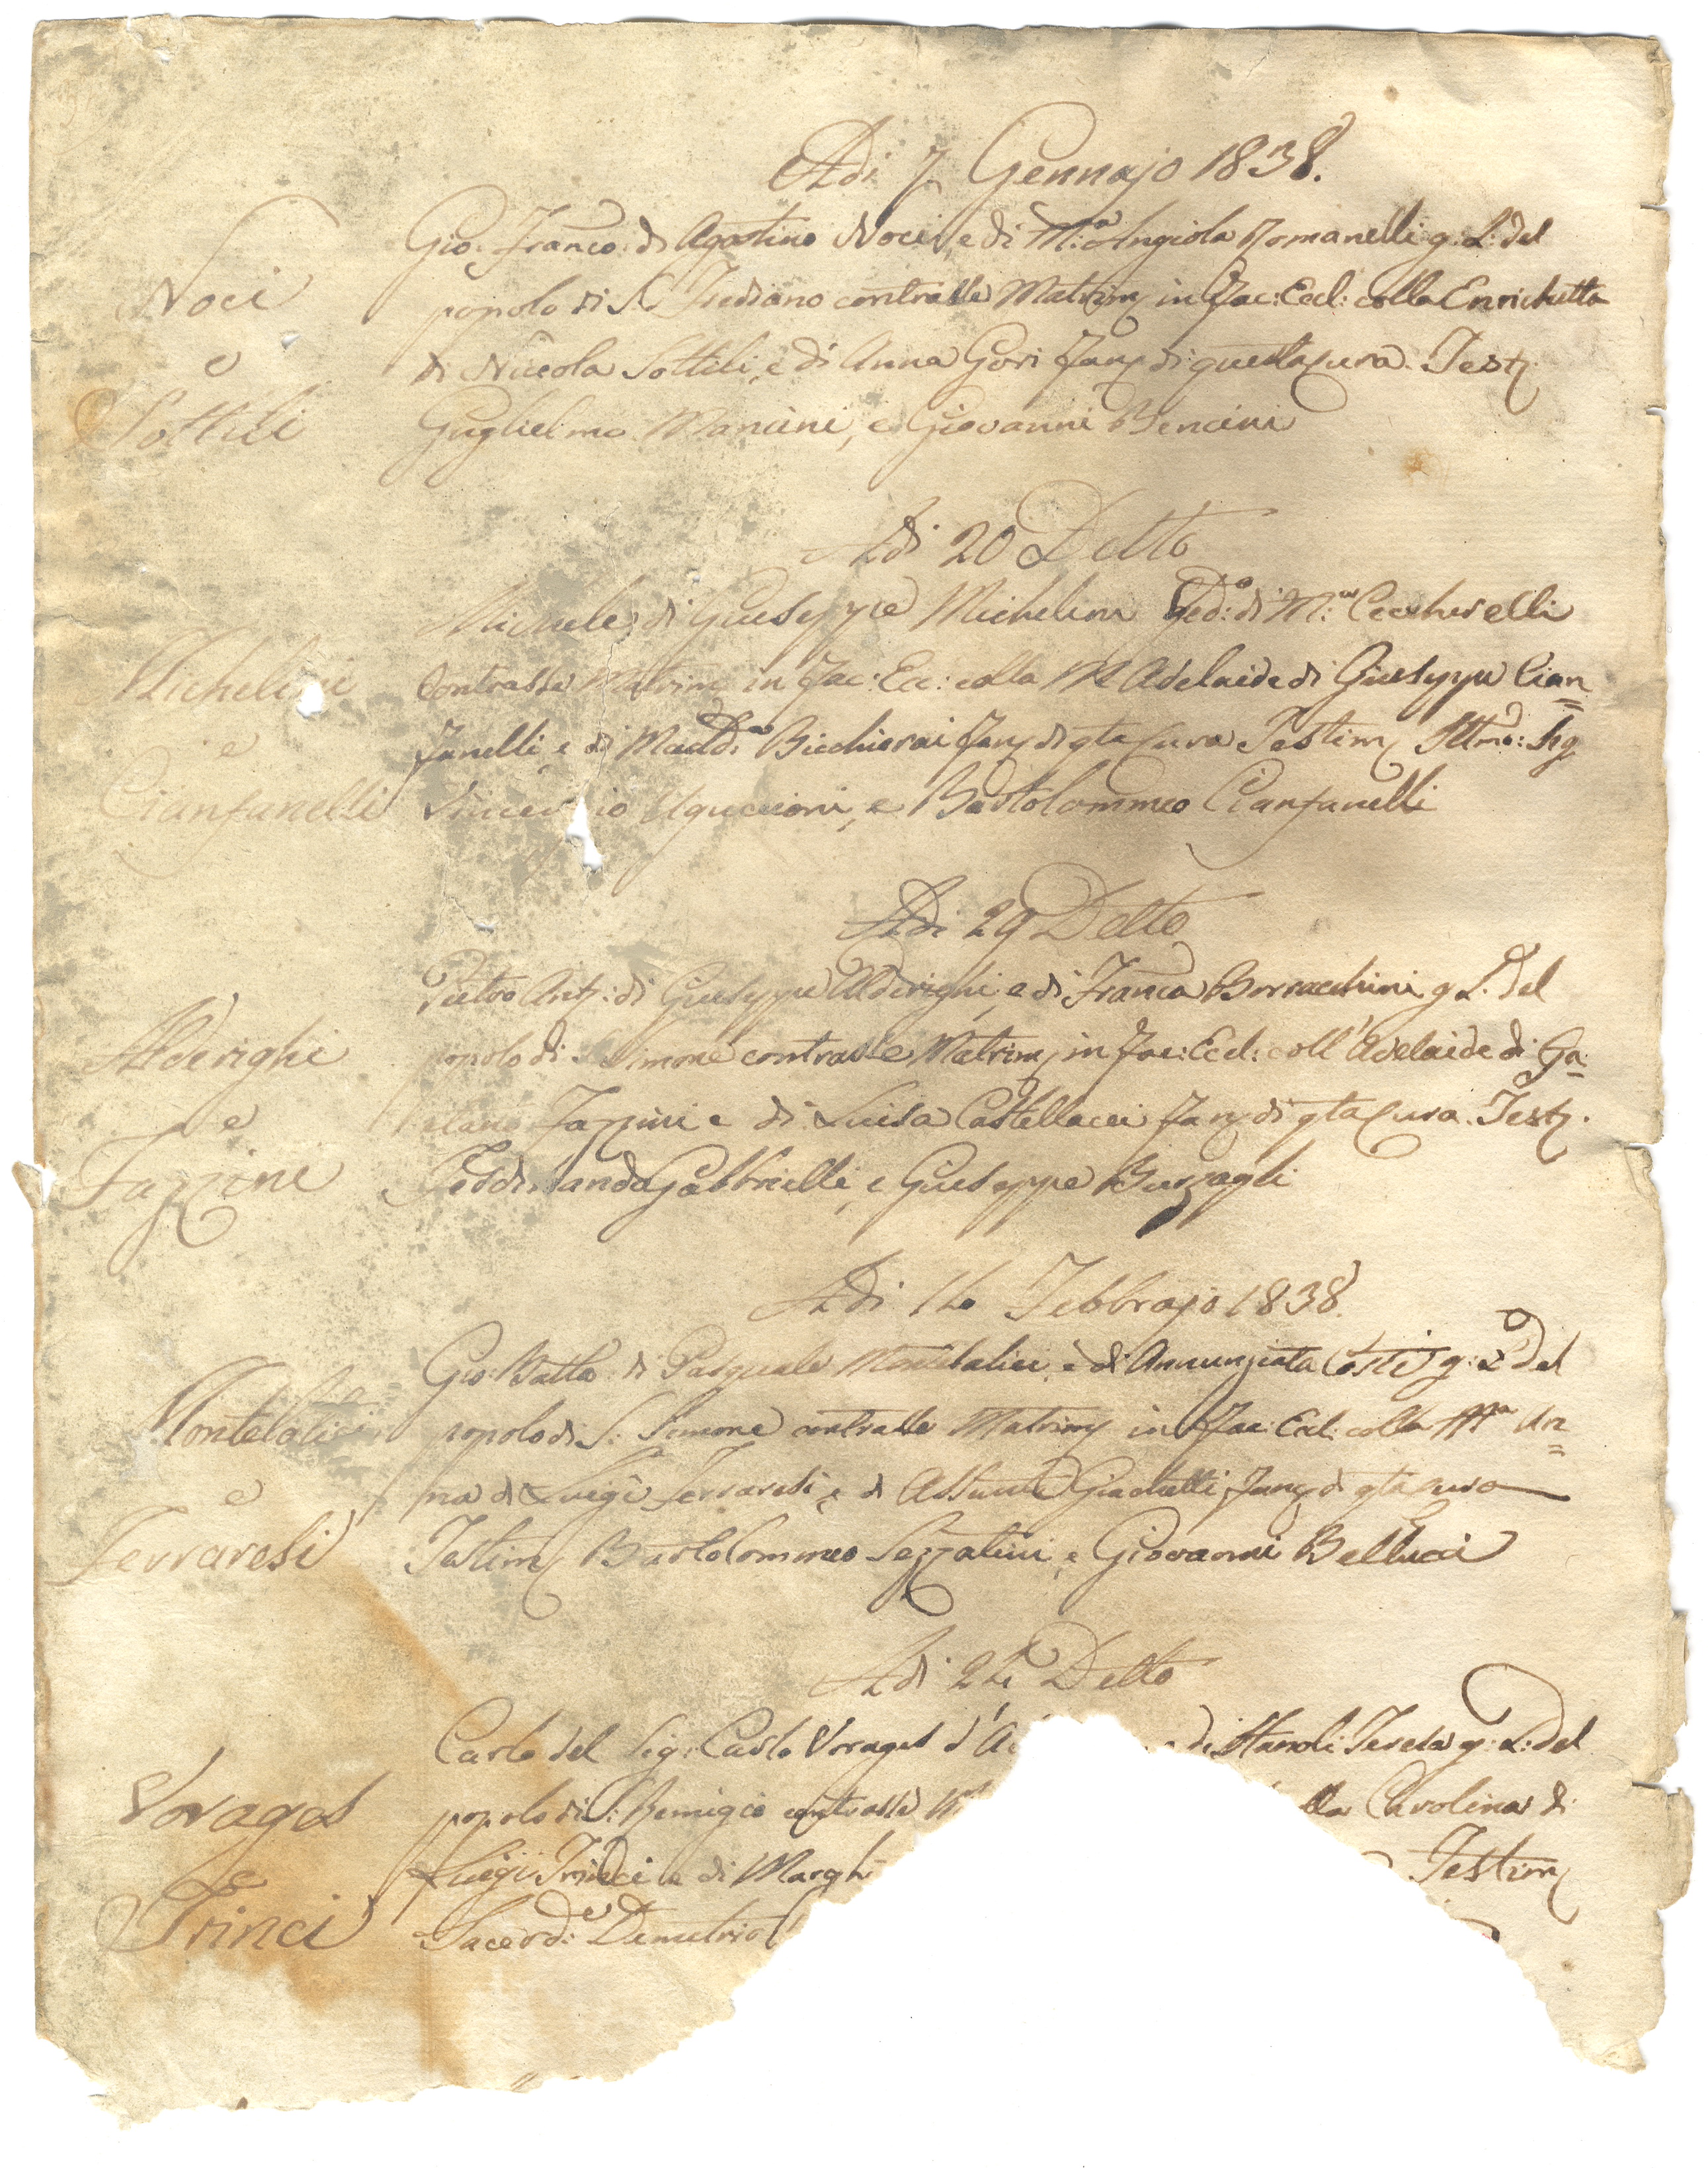 Adi 7 Gennajo 1838.
Noci
e
Sottili
Gio: Franco: di Agostino Noci, e di M:a Angiola Romanelli g: L: del
popolo di S. Frediano contrasse Matrim in Fac: Eccl: colla Enrichetta
di Niccola Sottili, e di Anna Gori di questa Cura. Test
Guglielmo Mancini, e Giovanni Bencini
Adi 20 Detto
Michelini
e
Cianfanelli
Michele di Giuseppe Michelini Ved:o di M:a Ceccherelli
Contrasse Matrim in Fac: Ecc: colla Ma Adelaide di Giuseppe Cian=
fanelli, e di Madd:a Bicchierai di qta Cura Testim Illmo: Sig
Uguccioni, e Bartolommeo Cianfanelli
Adi 29 Detto
Alderighi
e
Fazzini
Pietro Ant: di Giuseppe Alderighi, e di Franca Borracchini g L: del
popolo di S Simone contrasse Matrim in Fac: Eccl: coll' Adelaide di Ga=
etano Fazzini e di Luisa Castellacci di qta Cura. Test.
Ferdinando Gabbrielli, e Giuseppe Burzagli
Adi 14 Febbrajo 1838.
Montelatici
e
Ferraresi
Gio: Batta: di Pasquale Montelatici, e di Annunziata Costi g: L: del
popolo di S: Simone contrasse Matrim in Fac: Eccl: colla Ma An=
na di Luigi Ferraresi, e di Assunta Giachetti di qta Cura
Testim Bartolommeo Sezzatini, e Giovanni Bellucci
Adi 24 Detto
Voraget
e
Trinci
Carlo del Sig: Carlo Voraget d' di Teresa g: L: del
popolo di S: Remigio contrasse lla Carolina di
Luigi Trinci e di Margh Testim
Sacerd:e Demetrio